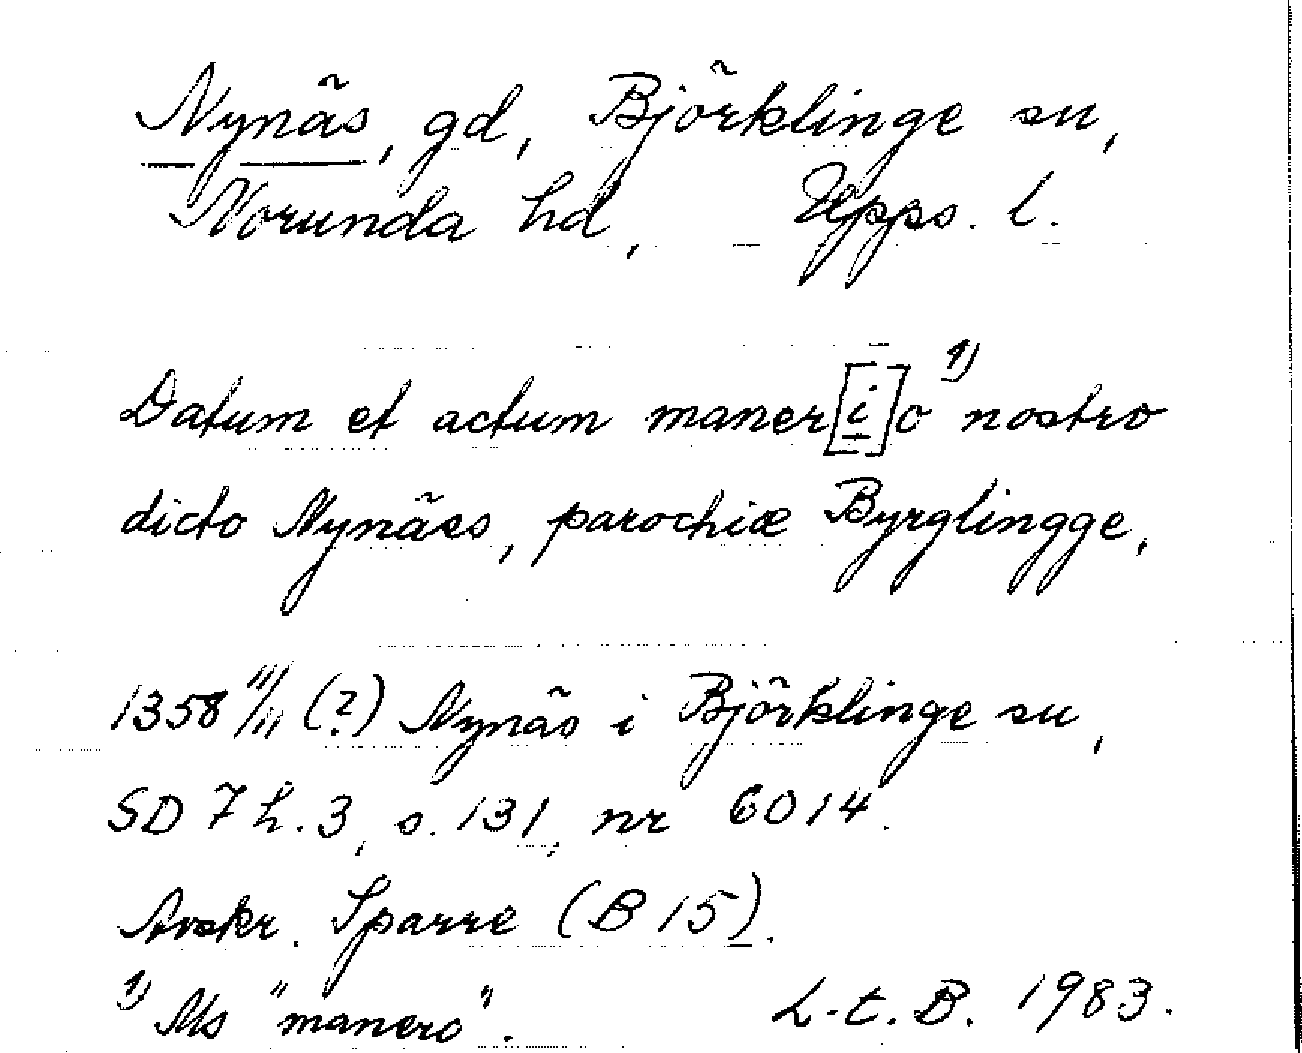 Nynäs, gd, Björklinge sn,
Norunda hd, Upps. l.
Datum et actum maner[i]o 1) nostro
dicto Nynäss, parochiæ Byrglingge,
1358 11/11 (?) Nynäs i Björklinge sn,
SD 7 h. 3, s. 131, nr 6014.
Avskr. Sparre (B 15).
1) Ms "manero". L-t. B. 1983.